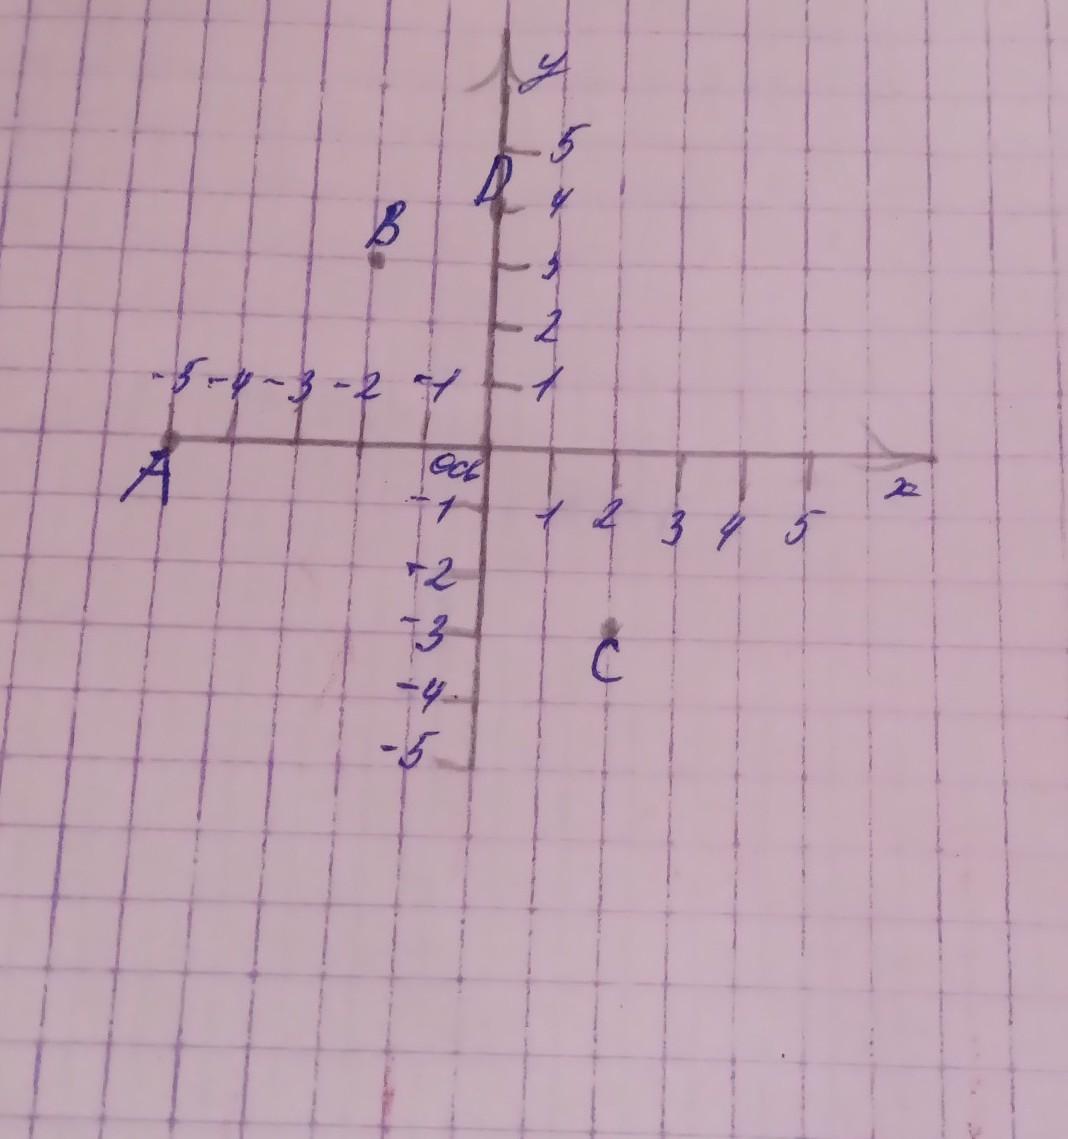 y
5
D
4
B
3
2
-5 -4 -3 -2 -1 1
A
x
-1 1 2 3 4 5
-2
-3
C
-4
-5